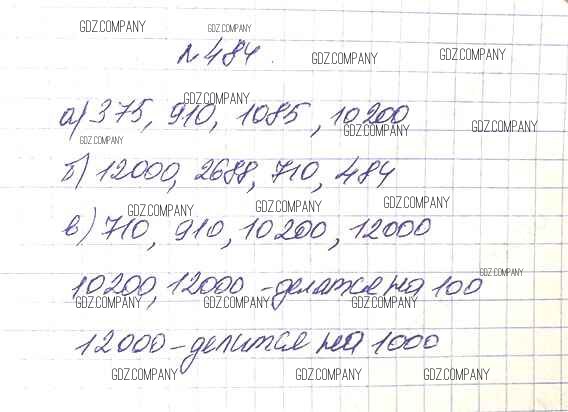 GDZ.COMPANY GDZ.COMPANY
№484. GDZ.COMPANY GDZ.COMPANY
GDZ.COMPANY
а) 375, 910, 1085, 10200
GDZ.COMPANY GDZ.COMPANY GDZ.COMPANY
б) 12000, 2688, 710, 484
GDZ.COMPANY GDZ.COMPANY GDZ.COMPANY
в) 710, 910, 10200, 12000
GDZ.COMPANY
10200, 12000 - делатся на 100
GDZ.COMPANY GDZ.COMPANY GDZ.COMPANY
12000 - делится на 1000
GDZ.COMPANY GDZ.COMPANY GDZ.COMPANY